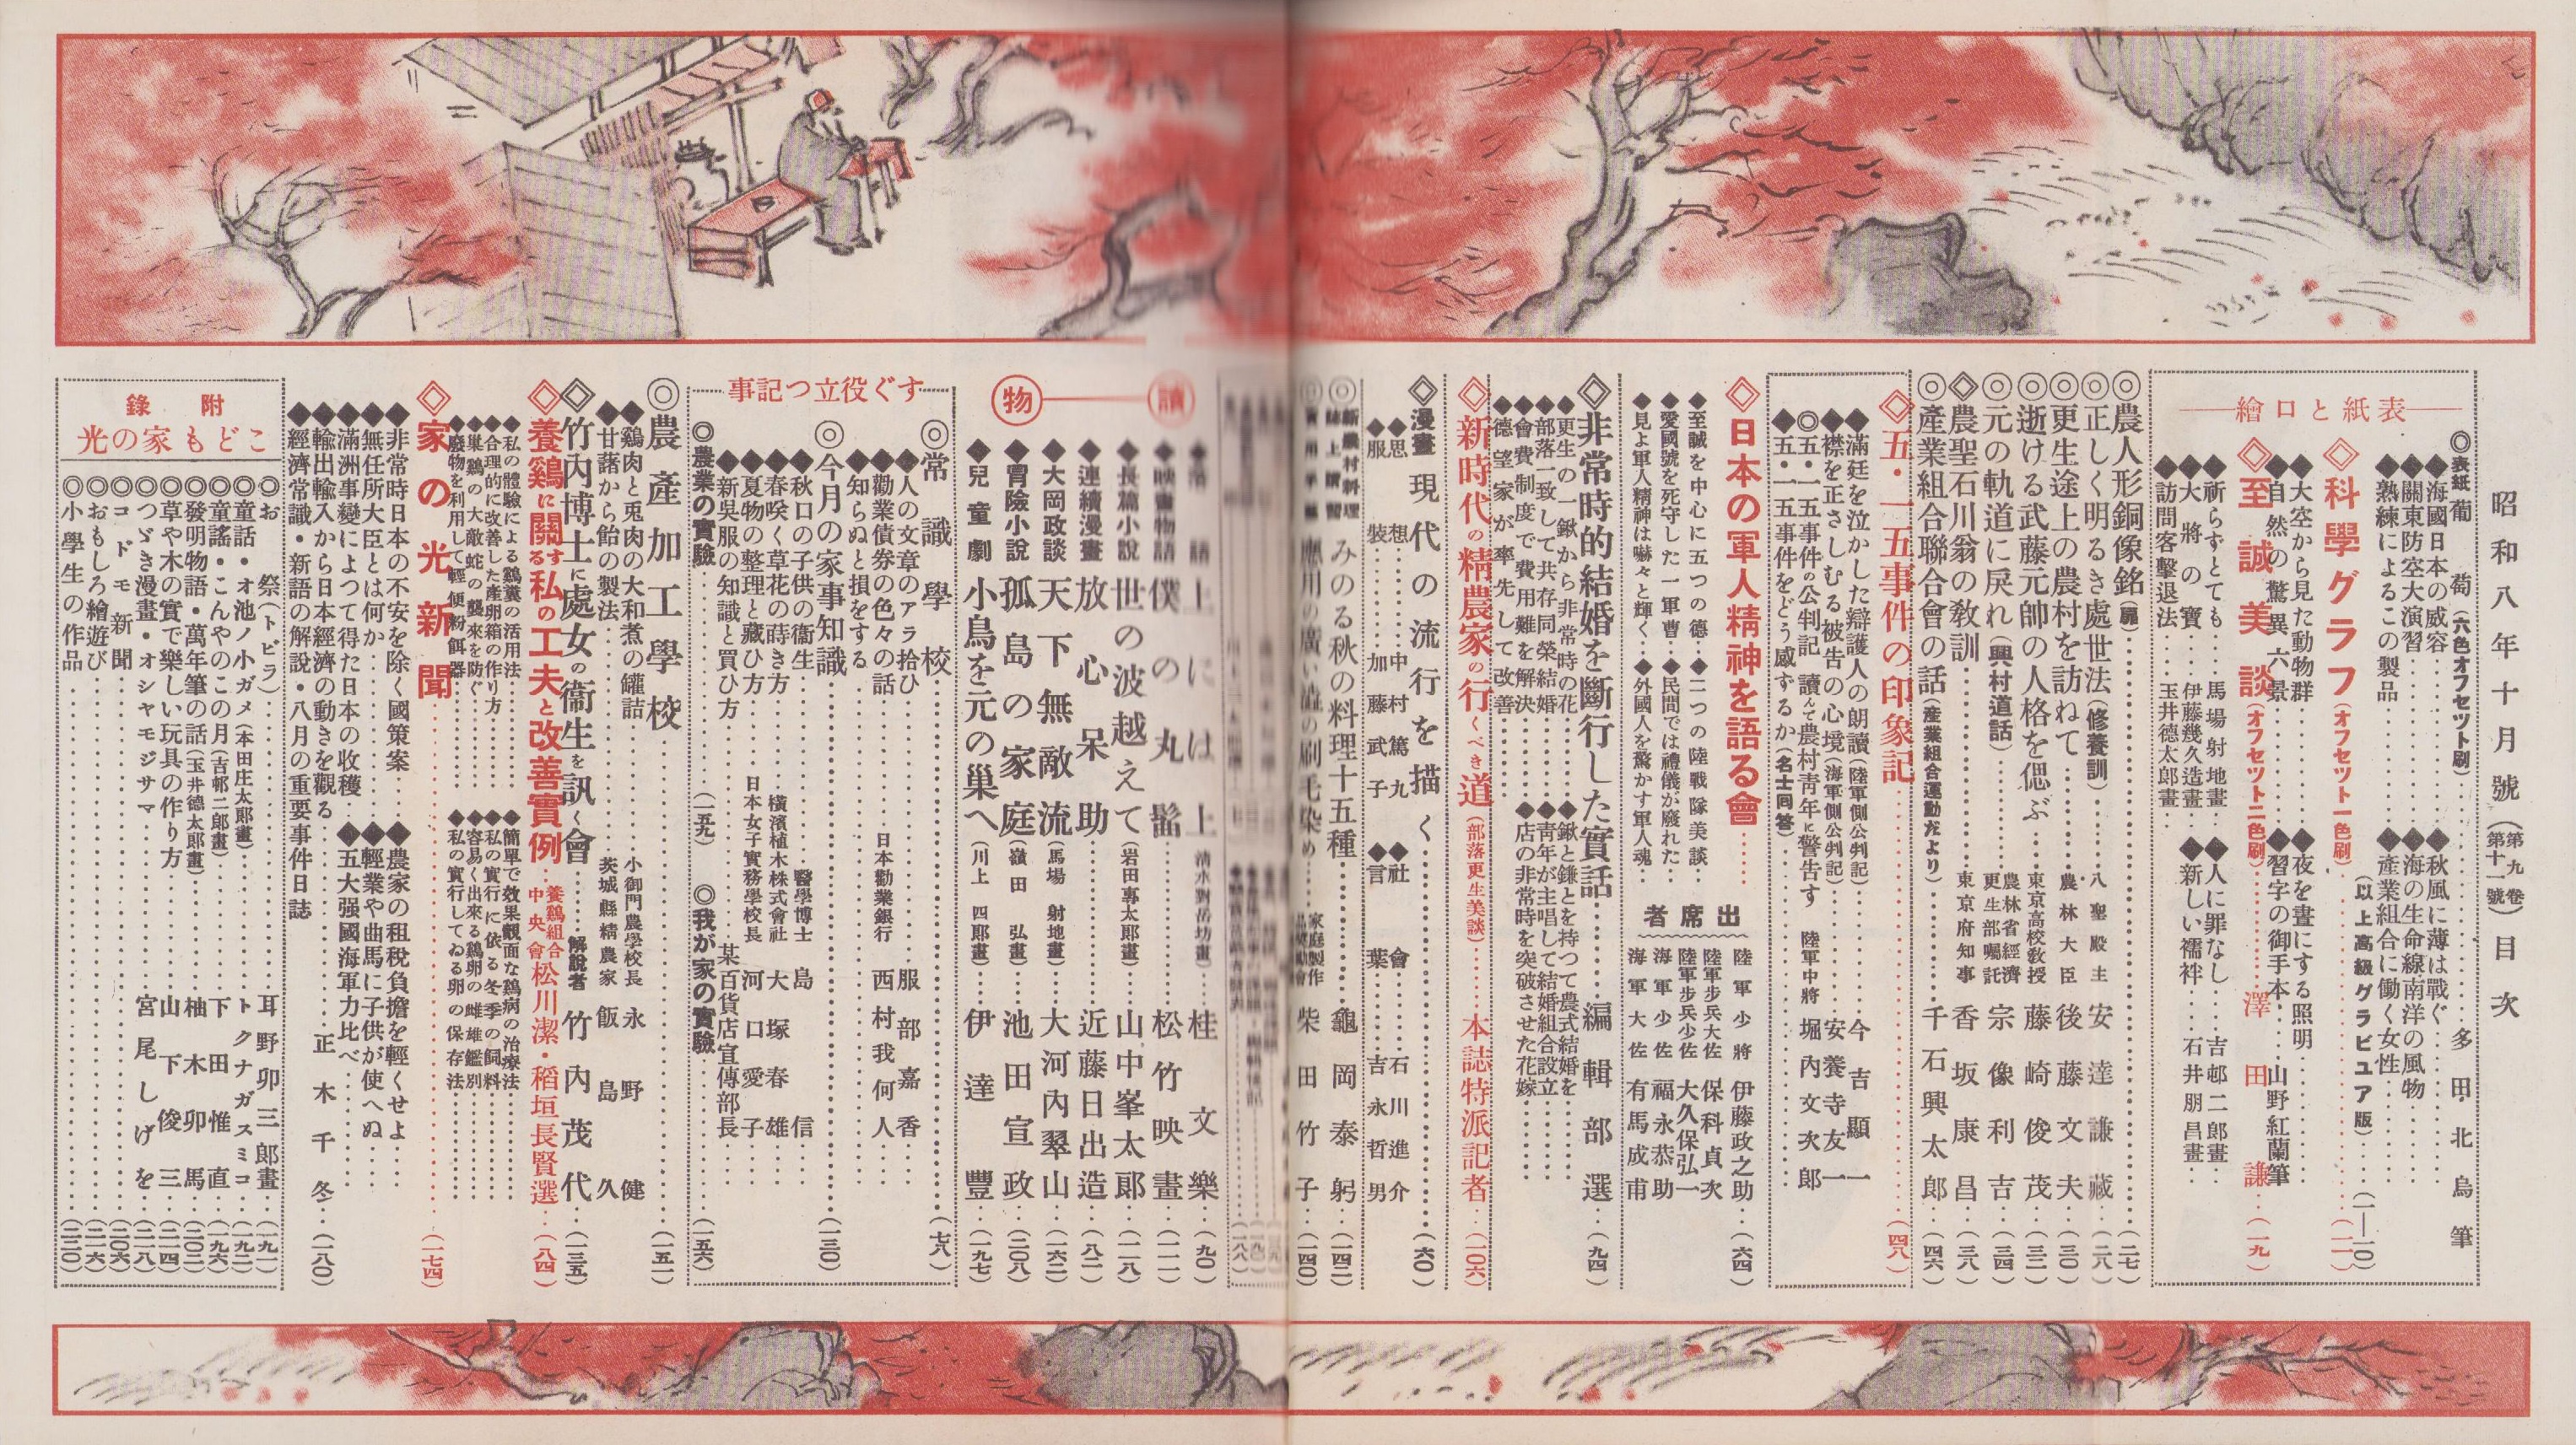 昭和八年十月號（第九卷 第十一號）目次
表紙と口繪
◎表紙 葡萄（六色オフセツト刷）……多田北烏筆
◆海國日本の威容……◆秋風に薄は戰ぐ……
◆關東防空大演習……◆海の生命線南洋の風物……
◆熟練によるこの製品……◆產業組合に働く女性……
（以上高級グラビユア版）……（一—一〇）
◇科學グラフ（オフセツト一色刷）……（一一）
◆大空から見た動物群……◆夜を晝にする照明……
◆自然の驚異六景……◆習字の御手本……山野紅蘭筆
◇至誠美談（オフセツト二色刷）……澤田謙……（一九）
◆祈らずとても……馬場射地畫……◆人に罪なし……吉邨二郎畫……
◆大將の寶……伊藤幾久造畫……◆新しい襦袢……石井朋昌畫……
◆訪問客擊退法……玉井德太郎畫……
◎農人形銅像銘（扉）……（二七）
◎正しく明るき處世法（修養訓）……八聖殿主 安達謙藏……（二八）
◎更生途上の農村を訪ねて……農林大臣 後藤文夫……（三〇）
◎逝ける武藤元帥の人格を偲ぶ……東京高校敎授 藤崎俊茂……（三二）
◎元の軌道に戾れ（興村道話）……農林省經濟更生部囑託 宗像利吉……（三四）
◇農聖石川翁の敎訓……東京府知事 香坂康昌……（三八）
◎產業組合聯合會の話（產業組合運動だより）……千石興太郎……（四六）
◇五・一五事件の印象記……（四八）
◆滿廷を泣かした辯護人の朗讀（陸軍側公判記）……今吉顯一
◆襟を正さしむる被告の心境（海軍側公判記）……安養寺友一
◎五・一五事件の公判記 讀んで農村靑年に警告す 陸軍中將 堀內文次郎
◆五・一五事件をどう感ずるか（名士回答）……
◇日本の軍人精神を語る會……（六四）
出席者
陸軍少將 伊藤政之助
陸軍步兵大佐 保科貞次
陸軍步兵少佐 大久保弘一
海軍少佐 福永恭助
海軍大佐 有馬成甫
◆至誠を中心に五つの德……◆二つの陸戰隊美談……
◆愛國號を死守した一軍曹……◆民間では禮儀が廢れた……
◆見よ軍人精神は嚇々と輝く……◆外國人を驚かす軍人魂……
◇非常時的結婚を斷行した實話……編輯部選……（九四）
◆更生の一鍬から非常時の花……◆鍬と鎌とを持つて農式結婚を……
◆部落一致して共存同榮結婚……◆靑年が主唱して結婚組合設立……
◆會費制度で費用難を解決……◆店の非常時を突破させた花嫁……
◆德望家が率先して改善……
◇新時代の精農家の行くべき道（部落更生美談）……本誌特派記者……（一〇六）
◇漫畫 現代の流行を描く……（六〇）
◆思想……中村篤九 ◆社會……石川進介
◆服裝……加藤武子 ◆言葉……吉永哲男
◎新農村料理誌上講習 みのる秋の料理十五種……龜岡泰躬……（一四二）
應用の廣い澁の刷毛染め……柴田竹子……（一四〇）
讀物
◆落語 上には上（淸水對岳坊畫）……桂文樂……（九〇）
◆映畫物語 僕の丸髷……松竹映畫……（一一一）
◆長篇小說 世の波越えて（岩田專太郞畫）……山中峯太郞……（一一八）
◆連續漫畫 放心呆助……近藤日出造……（八二）
◆大岡政談 天下無敵流（馬場射地畫）……大河內翠山……（一六二）
◆冒險小說 孤島の家庭（嶺田弘畫）……池田宣政……（二〇八）
◆兒童劇 小鳥を元の巢へ（川上四郞畫）……伊達豐……（一九七）
すぐ役立つ記事
◎常識學校……（七八）
◆人の文章のアラ拾ひ……服部嘉香……
◆勸業債券の色々の話……日本勸業銀行 西村我何人……
◆知らぬと損をする……
◎今月の家事知識……（一三〇）
◆秋口の子供の衞生……醫學博士 島信……
◆春咲く草花の蒔き方……橫濱植木株式會社 大塚春雄……
◆夏物の整理と藏ひ方……日本女子實務學校長 河口愛子……
◆新吳服の知識と買ひ方……某百貨店宣傳部長……
◎農業の實驗……（一五九） ◎我が家の實驗……（一五六）
◎農產加工學校……（一五一）
◆鷄肉と兎肉の大和煮の罐詰……小御門農學校長 永野健
◆甘藷から飴の製法……茨城縣精農家 飯島久
◇竹內博士に處女の衞生を訊く會……解說者 竹內茂代……（一三五）
◇養鷄に關する私の工夫と改善實例……養鷄組合中央會 松川潔・稻垣長賢選……（八四）
◆私の體驗による鷄糞の活用法……◆簡單で效果覿面な鷄病の治療法……
◆合理的に改善した產卵箱の作り方……◆私の實行に依る冬季の飼料……
◆巢鷄の大敵蛇の襲來を防ぐ……◆容易く出來る鷄卵の雌雄鑑別……
◆廢物を利用して輕便粉餌器……◆私の實行してゐる卵の保存法……
◇家の光新聞……（一七四）
◆非常時日本の不安を除く國策案……◆農家の租稅負擔を輕くせよ……
◆無任所大臣とは何か……◆輕業や曲馬に子供が使へぬ……
◆滿洲事變によつて得た日本の收穫……◆五大强國海軍力比べ……
◆輸出輸入から日本經濟の動きを觀る……正木千冬……（一八〇）
◆經濟常識・新語の解說・八月の重要事件日誌
附錄
こども家の光
◎お祭（トビラ）……耳野卯三郎畫……（一九一）
◎童話・オ池ノ小ガメ（本田庄太郎畫）……トクナガスミコ……（一九二）
◎童謠・こんやのこの月（吉邨二郎畫）……下田惟直……（一九六）
◎發明物語・萬年筆の話（玉井德太郎畫）……柚木卯馬……（二〇二）
◎草や木の實で樂しい玩具の作り方……山下俊三……（二一四）
◎つゞき漫畫・オシヤモジサマ……宮尾しげを……（二一八）
◎コドモ新聞……（二〇六）
◎おもしろ繪遊び……（二一六）
◎小學生の作品……（二二〇）